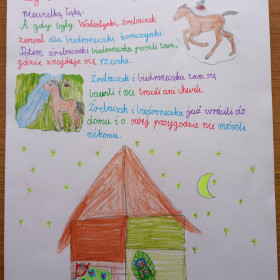 niewielką łąkę.
A gdy były Walentynki, źrebaczek
zerwał dla biedroneczki koniczynki.
Potem źrebaczek i biedroneczka poszli tam,
gdzie znajduje się rzeczka.
Źrebaczek i biedroneczka tam się
bawili i nie tracili ani chwili.
Źrebaczek i biedroneczka już wrócili do
domu i o swej przygodzie nie mówili
nikomu.